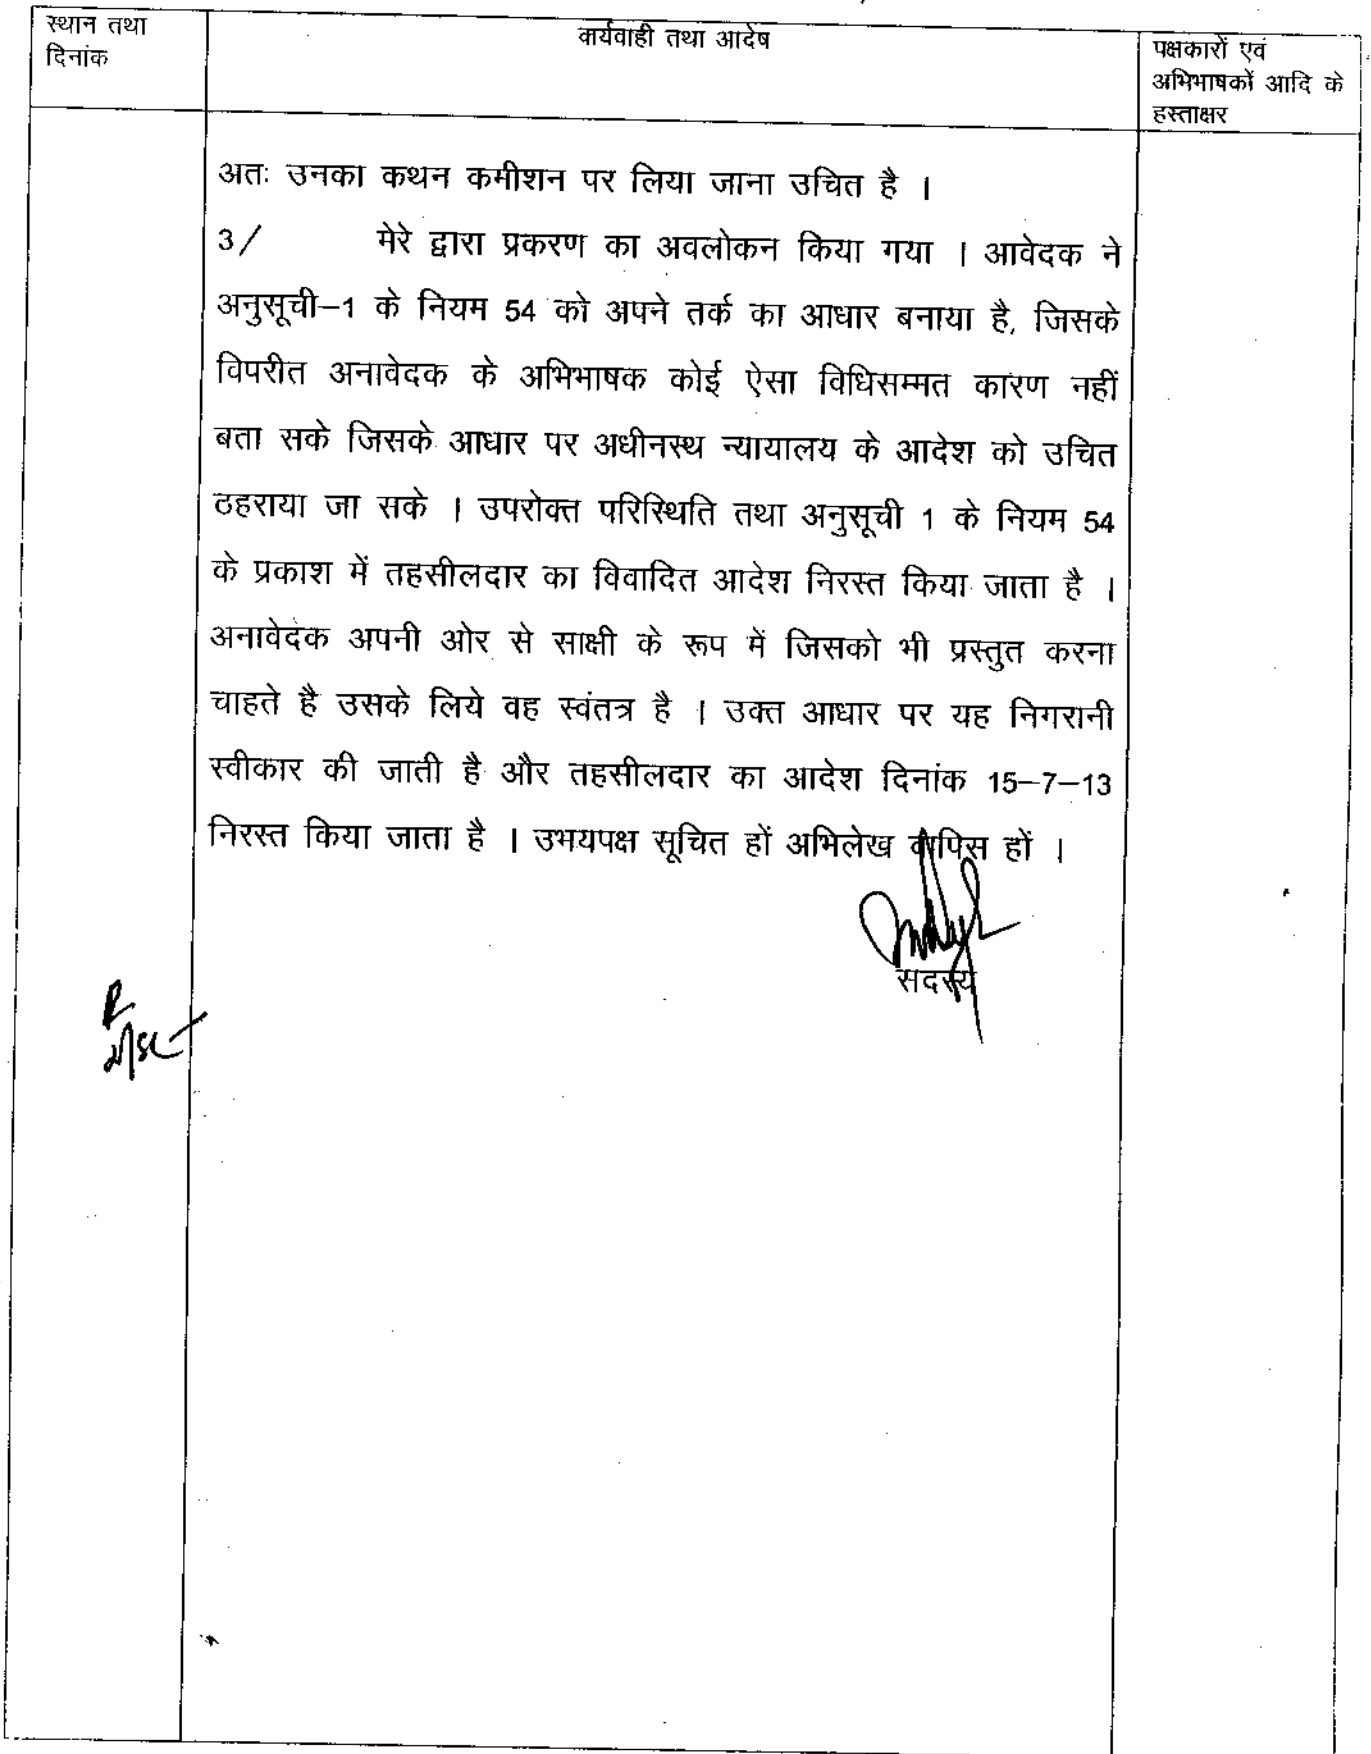 स्थान तथा
दिनांक
कार्यवाही तथा आदेष
पक्षकारों एवं
अभिभाषकों आदि के
हस्ताक्षर
अतः उनका कथन कमीशन पर लिया जाना उचित है ।
3/ मेरे द्वारा प्रकरण का अवलोकन किया गया । आवेदक ने
अनुसूची–1 के नियम 54 को अपने तर्क का आधार बनाया है, जिसके
विपरीत अनावेदक के अभिभाषक कोई ऐसा विधिसम्मत कारण नहीं
बता सके जिसके आधार पर अधीनस्थ न्यायालय के आदेश को उचित
ठहराया जा सके । उपरोक्त परिस्थिति तथा अनुसूची 1 के नियम 54
के प्रकाश में तहसीलदार का विवादित आदेश निरस्त किया जाता है ।
अनावेदक अपनी ओर से साक्षी के रूप में जिसको भी प्रस्तुत करना
चाहते है उसके लिये वह स्वंतत्र है । उक्त आधार पर यह निगरानी
स्वीकार की जाती है और तहसीलदार का आदेश दिनांक 15–7–13
निरस्त किया जाता है । उभयपक्ष सूचित हों अभिलेख वापिस हों ।
सदस्य